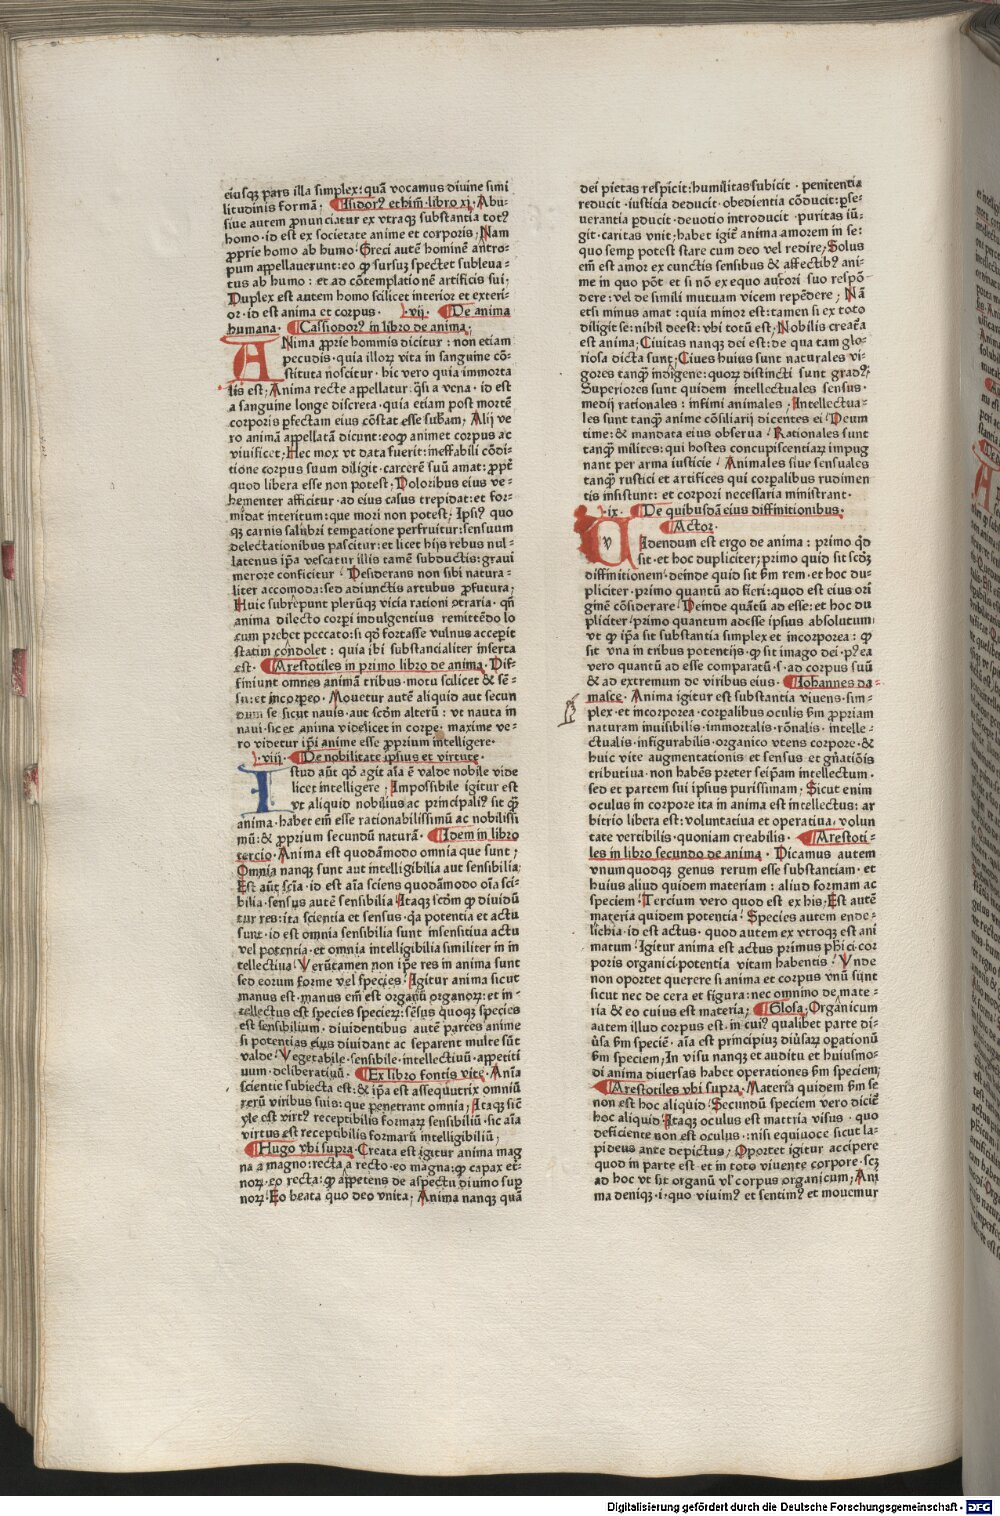 eiusqꝫ pars illa simplex: quā vocamus diuine simi
litudinis formā. Isidorꝰ ethim̄. libro xi. Abu⸗
siue autem ꝓnunciatur ex vtraqꝫ substantia totꝰ
homo. id est ex societate anime et corporis. Nam
ꝓprie homo ab humo. Greci autē hominē antro⸗
pum appellauerunt: eo ꝙ sursuꝫ spectet subleua⸗
tus ab humo: et ad cōtemplationē artificis sui.
Duplex est autem homo scilicet interior et exteri⸗
or. id est anima et corpus. .vij. De anima
humana. Cassiodorꝰ in libro de anima.
ANima ꝓprie hominis dicitur: non etiam
pecudis. quia illoꝝ vita in sanguine cō⸗
stituta noscitur. hic vero quia immorta
lis est. Anima recte appellatur. q̄si a vena. id est
a sanguine longe discreta. quia etiam post mortē
corporis ꝑfectam eius cōstat esse sub̄am. Alij ve
ro animā appellatā dicunt: eoqꝫ animet corpus ac
viuificet. Hec mox vt data fuerit: ineffabili cōdi⸗
tione corpus suum diligit. carcerē suū amat: ꝓpt̄
quod libera esse non potest. Doloribus eius ve⸗
hementer afficitur. ad eius casus trepidat: et for⸗
midat interitum: que mori non potest. Ipsiꝰ quo
qꝫ carnis salubri temperatione perfruitur: sensuum
delectationibus pascitur: et licet hijs rebus nul⸗
latenus ip̄a vescatur illis tamē subductis: graui
merore conficitur. Desiderans non sibi natura⸗
liter accomoda: sed adiunctis artubus ꝓfutura.
Huic subrepunt plerūqꝫ vicia rationi ꝯtraria. qn̄
anima dilecto corpi indulgentius remittēdo lo
cum prebet peccato: si qͦ fortasse vulnus acceperit
statim condolet: quia ibi substantialiter inserta
est. Arestotiles in primo libro de anima. Dif⸗
finiunt omnes animā tribus. motu scilicet & sē⸗
su: et incorꝑeo. Mouetur autē aliquid aut secun
dum se sicut nauis. aut scd̄m alterū: vt nauta in
naui. sic et anima videlicet in corpe. maxime ve⸗
ro videtur ip̄i anime esse ꝓprium intelligere.
.viij. De nobilitate ip̄sius et virtute.
Istud aūt qͦ agit aīa ē valde nobile vide
licet intelligere. Impossibile igitur est
vt aliquid nobilius ac principaliꝰ sit qꝫ̄
anima. habet em̄ esse rationabilissimū ac nobilissi
mū: & ꝓprium secundū naturā. Idem in libro
tercio. Anima est quodāmodo omnia que sunt.
Omnia nanqꝫ sunt aut intelligibilia aut sensibilia.
Est aūt scīa. id est aīa sciens quodāmodo oīa sci⸗
bilia. sensus autē sensibilia. Itaqꝫ scd̄m ꝙ diuidū
tur res: ita scientia et sensus. q̄a potentia et actu
sunt. id est omnia sensibilia sunt insensitiua actu
vel potentia. et omnia intelligibilia similiter in in
tellectiua. Verūtamen non ip̄e res in anima sunt
sed eorum forme vel species. Igitur anima sicut
manus est. manus em̄ est organū organoꝝ: et in⸗
tellectus est species specieꝝ: sēsus quoqꝫ species
est sensibilium. diuidentibus autē partes anime
si potentias eius diuidant ac separent multe sūt
valde. Vegetabile. sensibile. intellectiuū. appetiti
uum. deliberatiuū. Ex libro fontis vite. Anīa
scientie subiecta est: & ip̄a est assequutrix omniū
rerū viribus suis: que penetrant omnia. Itaqꝫ sic̄
yle est virtꝰ receptibilis formaꝝ sensibiliū. sic aīa
virtus est receptibilis formarū intelligibiliū.
Hugo vbi supra. Creata est igitur anima mag
na a magno: recta a recto. eo magna: ꝙ capax et̄⸗
noꝝ. eo recta: ꝙ appetens de aspectu diuino suꝑ
noꝝ. Eo beata quo deo vnita. Anima nanqꝫ quā
dei pietas respicit: humilitas subicit. penitentia
reducit. iusticia deducit. obedientia cōducit: ꝑse⸗
uerantia ꝑducit. deuotio introducit. puritas iū⸗
git. caritas vnit. habet igit̄ anima amorem in se:
quo semꝑ potest stare cum deo vel redire. Solus
em̄ est amor ex cunctis sensibus & affectibꝰ ani⸗
me in quo pōt et si nō ex equo auctori suo respō⸗
dere: vel de simili mutuam vicem repēdere. Nā
etsi minus amat: quia minor est: tamen si ex toto
diligit se: nihil deest: vbi totū est. Nobilis creat̄a
est anima. Ciuitas nanqꝫ dei est: de qua tam glo⸗
riosa dicta sunt. Ciues huius sunt naturales vi⸗
gores tanqꝫ̄ indigene: quoꝝ distincti sunt gradꝰ.
Superiores sunt quidem intellectuales sensus.
medij rationales: infimi animales. Intellectua⸗
les sunt tanqꝫ̄ anime cōsiliarij dicentes ei. Deum
time: & mandata eius obserua. Rationales sunt
tanqꝫ̄ milites: qui hostes concupiscentiaꝝ impug
nant per arma iusticie. Animales siue sensuales
tanqꝫ̄ rustici et artifices qui corpalibus rudimen
tis insistunt: et corpori necessaria ministrant.
.ix. De quibusdā eius diffinitionibus.
Actor.
VIdendum est ergo de anima: primo qd̄
sit. et hoc dupliciter. primo quid sit scd̄m
diffinitionem. deinde quid sit s̄m rem. et hoc du⸗
pliciter. primo quantū ad fieri: quod est eius ori
ginē cōsiderare. Deinde quātū ad esse: et hoc du
pliciter. primo quantum adesse ipsius absolutum
vt ꝙ ip̄a sit substantia simplex et incorporea: ꝙ
sit vna in tribus potentijs. ꝙ sit imago dei. pꝰea
vero quantū ad esse comparatū. s. ad corpus suū
& ad extremum de viribus eius. Iohannes da⸗
masce. Anima igitur est substantia viuens. sim⸗
plex. et incorporea. corpalibus oculis s̄m ꝓpriam
naturam inuisibilis. immortalis. rōnalis. intelle⸗
ctualis. infigurabilis. organico vtens corpore. &
huic vite augmentationis et sensus et gn̄atiōis
tributiua. non habēs preter seip̄am intellectum.
sed et partem sui ipsius purissimam. Sicut enim
oculus in corpore ita in anima est intellectus: ar
bitrio libera est: voluntatiua et operatiua. volun
tate vertibilis. quoniam creabilis. Arestoti⸗
les in libro secundo de anima. Dicamus autem
vnumquodqꝫ genus rerum esse substantiam. et
huius aliud quidem materiam: aliud formam ac
speciem. Tercium vero quod est ex his. Est autē
materia quidem potentia. Species autem ende⸗
lichia. id est actus. quod autem ex vtroqꝫ est ani
matum. Igitur anima est actus primus phīci cor
poris organici. potentia vitam habentis. Vnde
non oportet querere si anima et corpus vnū sunt
sicut nec de cera et figura: nec omnino de mate⸗
ria & eo cuius est materia. Glosa. Organicum
autem illud corpus est. in cuiꝰ qualibet parte di⸗
ūsa s̄m speciē. aīa est principiuꝫ diūsaꝝ oꝑationū
s̄m speciem. In visu nanqꝫ et auditu et huiusmo⸗
di anima diuersas habet operationes s̄m speciem.
Arestotiles vbi supra. Materia quidem s̄m se
non est hoc aliquid. Secundū speciem vero dicit̄
hoc aliquid. Itaqꝫ oculus est materia visus. quo
deficiente non est oculus. nisi equiuoce sicut la⸗
pideus aut depictus. Oportet igitur accipere
quod in parte est. et in toto viuente corpore. scꝫ
ad hoc vt sit organū vl̄ corpus organicum. Ani
ma deniqꝫ. i. quo viuimꝰ et sentimꝰ et mouemur
Digitalisierung gefördert durch die Deutsche Forschungsgemeinschaft - DFG